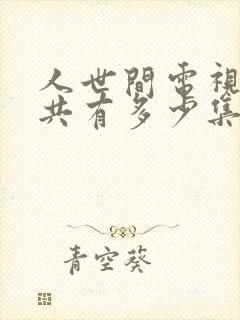 人世間電視
共有多少集
青空葵